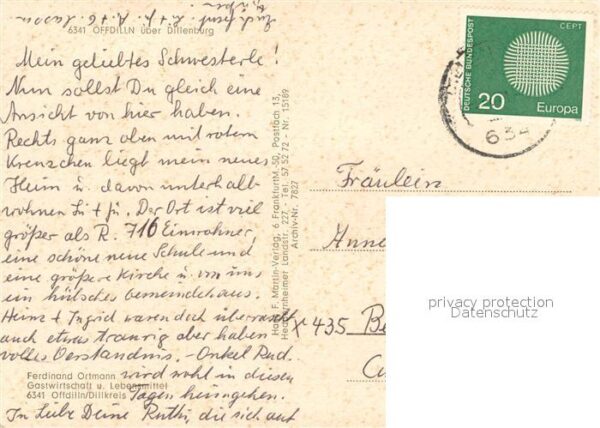 6341 OFFDILLN über Dillenburg
Mein geliebtes Schwesterle!
Nun sollst Du gleich eine
Ansicht von hier haben.
Rechts ganz oben mit rotem
Kreuzchen liegt mein neues
Heim u. davon unterhalb
wohnen Li + Jü. Der Ort ist viel
größer als R. 716 Einwohner,
eine schöne neue Schule und
eine größere Kirche u. von uns
ein hübsches Gemeindehaus.
Heinz + Ingrid waren doch überrascht
auch etwas traurig aber haben
volles Verständnis. - Onkel Rud.
wird wohl in diesen
Tagen heimgehen.
In Liebe Deine Ruthi, die sich auf
Ferdinand Ortmann
Gastwirtschaft u. Lebensmittel
6341 Offdilln/Dillkreis
Hans F. Martin-Verlag, 6 Frankfurt/M.-50, Postfach 13,
Heddernheimer Landstr. 227, - Tel. 57 52 72 - Nr. 15189
Archiv-Nr. 7827
DEUTSCHE BUNDESPOST
CEPT
20
Europa
634
Fräulein
Anne
X 435 Be
privacy protection
Datenschutz